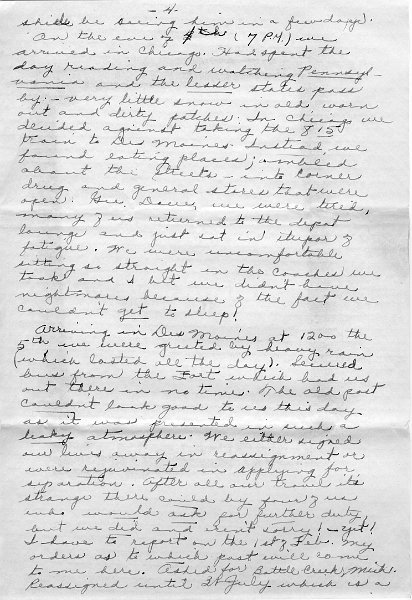 - 4 -
she'll be seeing him in a few days.
On the eve of 4th (7 P.M.) we
arrived in Chicago. Had spent the
day reading and watching Pennsyl-
vania and the lesser states pass
by - very little snow in old worn
out and dirty patches. In Chicago we
decided against taking the 8 15
train to Des Moines. Instead we
found eating places, ambled
about the streets - into corner
drug and general stores that were
open. Gee, Dave, we were tired,
many of us returned to the depot
lounge and just sat in stupor of
fatigue. We were uncomfortable
sitting so straight in the coaches we
took and I bet we didn't have
nightmares because of the fact we
couldn't get to sleep!
Arriving in Des Moines at 1200 the
5th we were greeted by heavy rain
(which lasted all the day). Secured
bus from the Fort which had us
out there in no time. The old post
couldn't look good to us this day
as it was presented in such a
leaky atmosphere. We either signed
our lives away in reassignment or
were rejuvenated in applying for
separation. After all our travel its
strange there could be four of us
who would ask for further duty,
but we did and aren't sorry! - yet!
I have to report on the 1st of Feb. My
orders as to which post will come
to me here. Asked for Battle Creek, Mich.
Reassigned until 21 July which is a